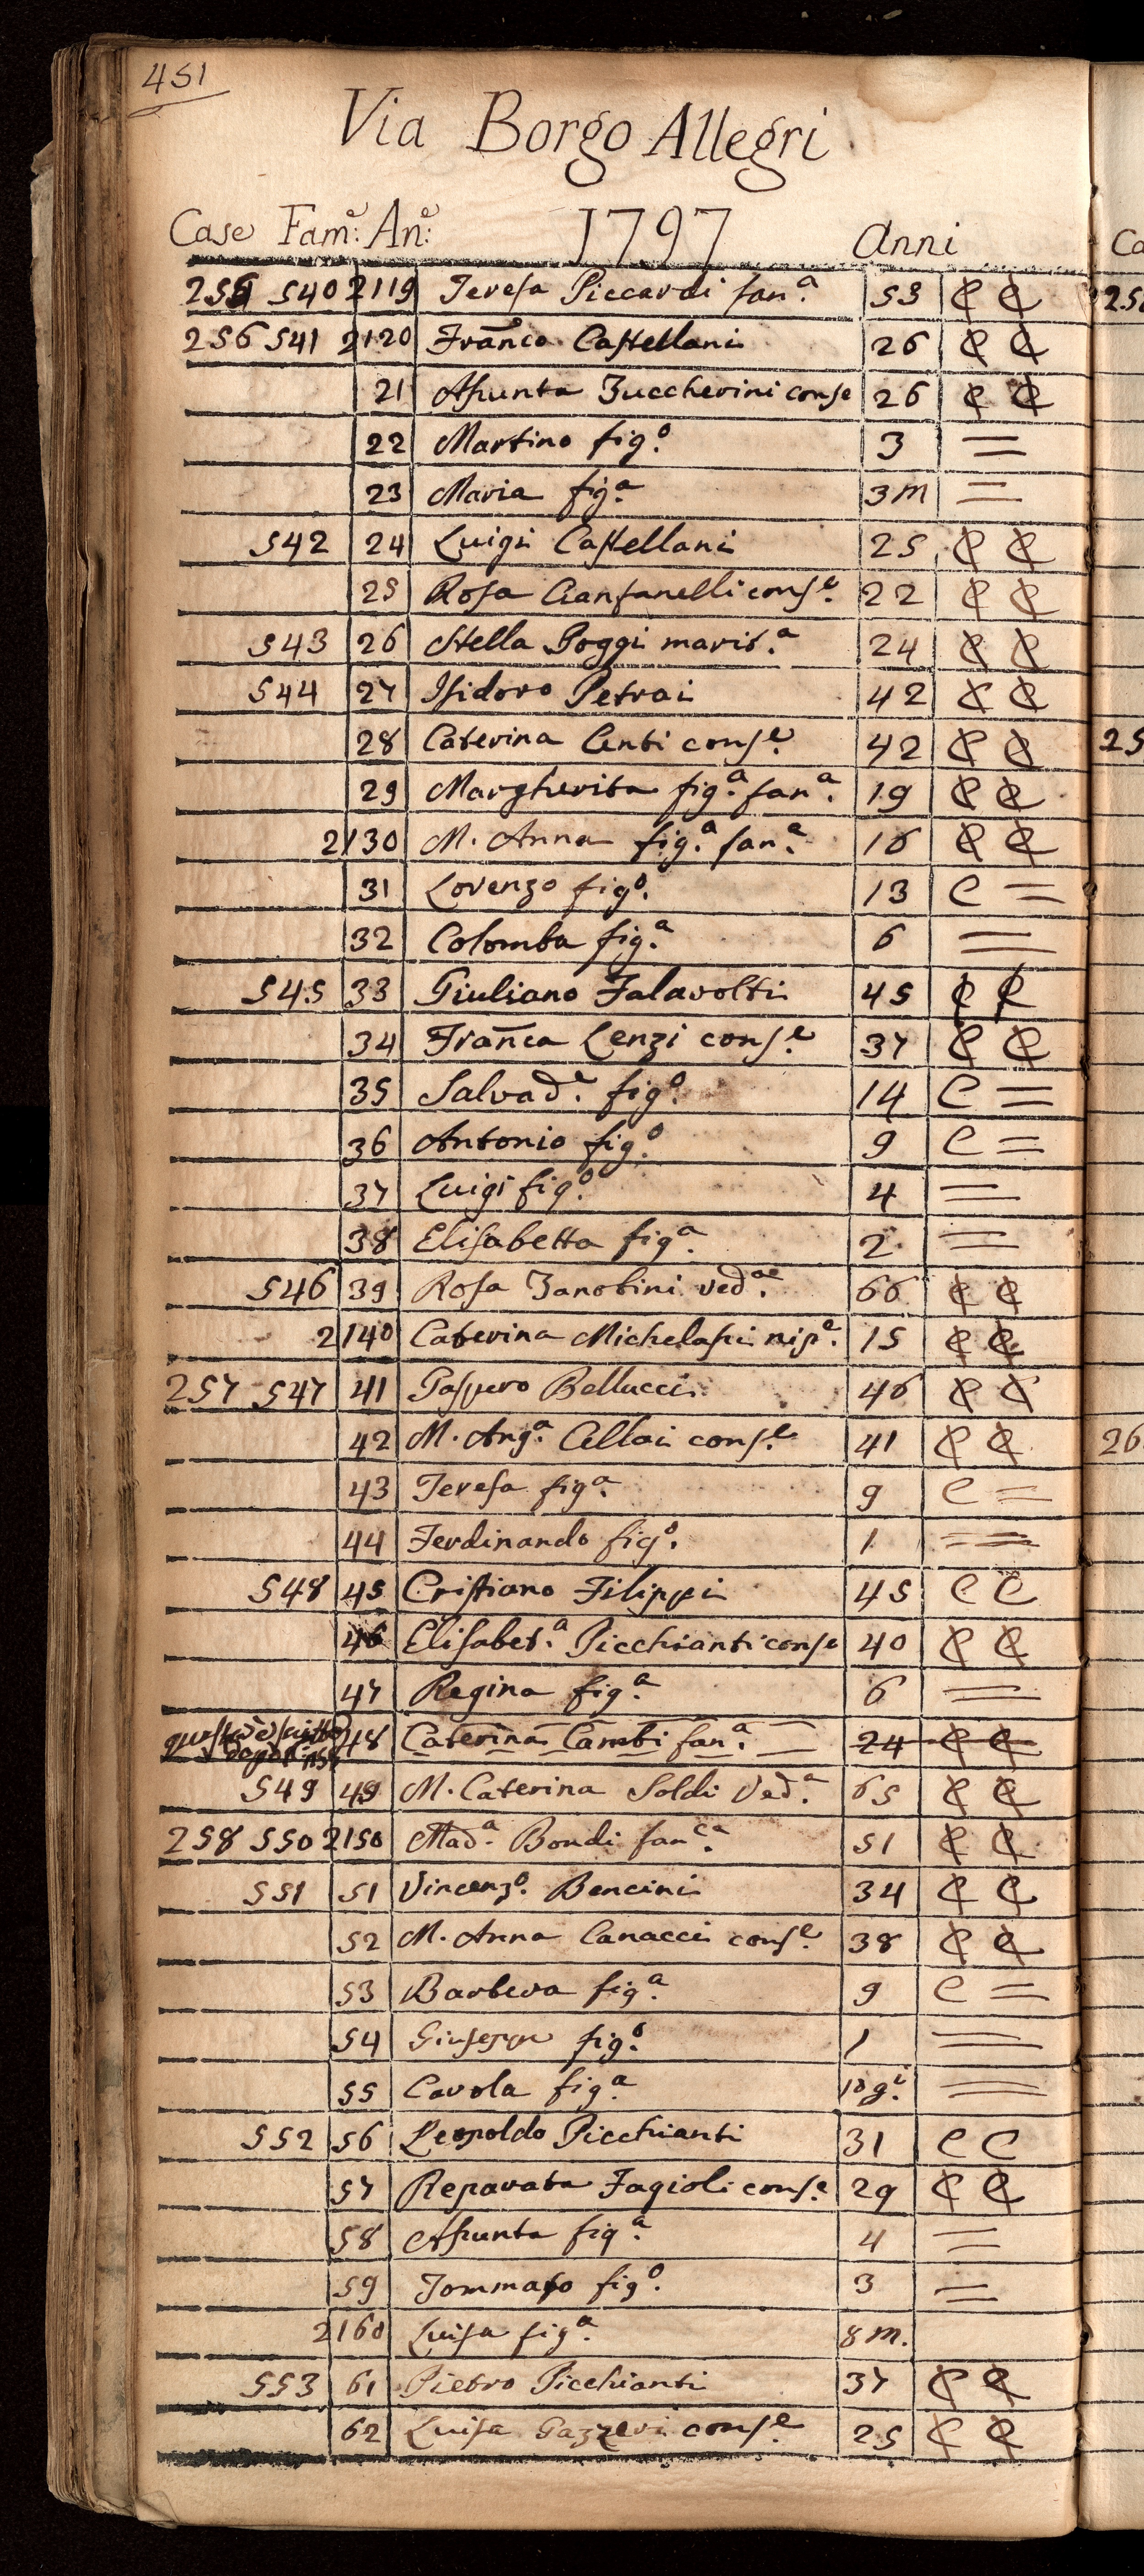 451
Via Borgo Allegri
Case Fam:e An:e 1797 Anni
255 540 2119 Teresa Piccardi fan.a 53 C C
256 541 2120 Franco Castellani 26 C C
21 Assunta Zuccherini conse 26 C C
22 Martino fig.o 3 =
23 Maria fig.a 3m =
542 24 Luigi Castellani 25 C C
25 Rosa Cianfanelli cons.e 22 C C
543 26 Stella Poggi marit.a 24 C C
544 27 Isidoro Petrai 42 C C
28 Caterina Centi cons.e 42 C C
29 Margherita fig.a fan.a 19 C C
2130 M. Anna fig.a fan.a 16 C C
31 Lorenzo fig.o 13 C =
32 Colomba fig.a 6 =
545 33 Giuliano Falavolti 45 C C
34 Franca Lenzi cons.e 37 C C
35 Salvad.e fig.o 14 C =
36 Antonio fig.o 9 C =
37 Luigi fig.o 4 =
38 Elisabetta fig.a 2 =
546 39 Rosa Zanobini ved.a 66 C C
2140 Caterina Michelassi nip.e 15 C C
257 547 41 Gaspero Bellucci 46 C C
42 M. Ang.a Cellai cons.e 41 C C
43 Teresa fig.a 9 C =
44 Ferdinando fig.o 1 =
548 45 Cristiano Filippi 45 C C
46 Elisabet.a Picchianti conse 40 C C
47 Regina fig.a 6 =
48 Caterina Cambi fan.a 24 C C
549 49 M. Caterina Soldi Ved.a 65 C C
258 550 2150 Mad.a Bondi fan.ca 51 C C
551 51 Vincenz.o Bencini 34 C C
52 M. Anna Canacci cons.e 38 C C
53 Barbera fig.a 9 C =
54 Giuseppe fig.o 1 =
55 Carola fig.a 10 g.i =
552 56 Leopoldo Picchianti 31 C C
57 Reparata Fagioli cons.e 29 C C
58 Assunta fig.a 4 =
59 Tommaso fig.o 3 =
2160 Luisa fig.a 8 m.
553 61 Pietro Picchianti 37 C C
62 Luisa Gazzeri cons.e 25 C C